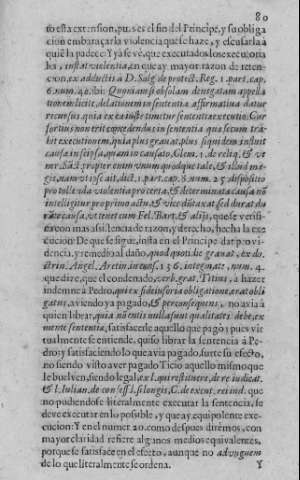 80
to esta extension, pues es el fin del Principe, y su obliga
cion embaraçar la violencia que se haze, y escusarla a
quiẽ la padece: Y ya se vè, que executados los executo-
ria, inflat violentia, en que ay mayor razon de reten-
cion, ex adductis à D. Salg. de protect. Reg. 1. part. cap.
6. num. 46. ibi: Quoniam si ob solam denegatam appella
tionem licitè, delationem in sententia affirmativa datur
recursus, quia ex ea iustè timetur sententiæ executio: Cur
fortius non erit concedendus in sententia que secum trà-
hit executionem, quia plus gravat, plus siquidem
causæ in se ipsa, quam in causato, Clem. 1. de reliq. &
ver. propter enim unum quodque tale, & illud ma-
gis, nam ut ipse ait, dict. 1. part. cap. 8. num. 25. dispositio
pro tollenda violentia pro certa, & determinata causa nõ
intelligitur pro primo actu, & vice duraxat sed durat du
rante causa, ut tenet cum Fel. Bart. & alijs, que se verifi-
ca con mas assistencia de razon, y derecho, hecha la exe
cucion: De que se sigue, insta en el Principe dar pro vi-
dencia, y remedio al daño, quod quotidie gravat, ex do-
ctrin. Angel. Aretin. in cons. 156. integrate, num. 4.
que dize, que el condenado, verb. grat. Titius, à hazer
indemne à Pedro, qui ex fideiussoria obligatione, erat obli
gatus, aviendo ya pagado, & per consequens, no avia à
quien librar, quia nõ entis nulla sunt qualitates: debe, ex
mente sententiæ, satisfacerle aquello que pagò; pues vir
tualmente se entiende, quiso librar la sentencia à Pe-
dro; y satisfaciendo lo que avia pagado, surte su efecto,
no siendo visto aver pagado Ticio aquello mismo que
le buelven, siendo legal, ex l. qui restituere, de re iudicat.
& l. Iulian. de confess. l. si longis, C. de execut. rei iud. que
no pudiendose literalmente executar la sentencia, se
deve executar en lo possible, y que ay equipolente exe-
cucion: Y en el numer. 20. como despues dirèmos, con
mayor claridad refiere algunos medios equivalentes,
porque se satisface en el efecto, aunque no ad unguem
de lo que literalmente se ordena. Y